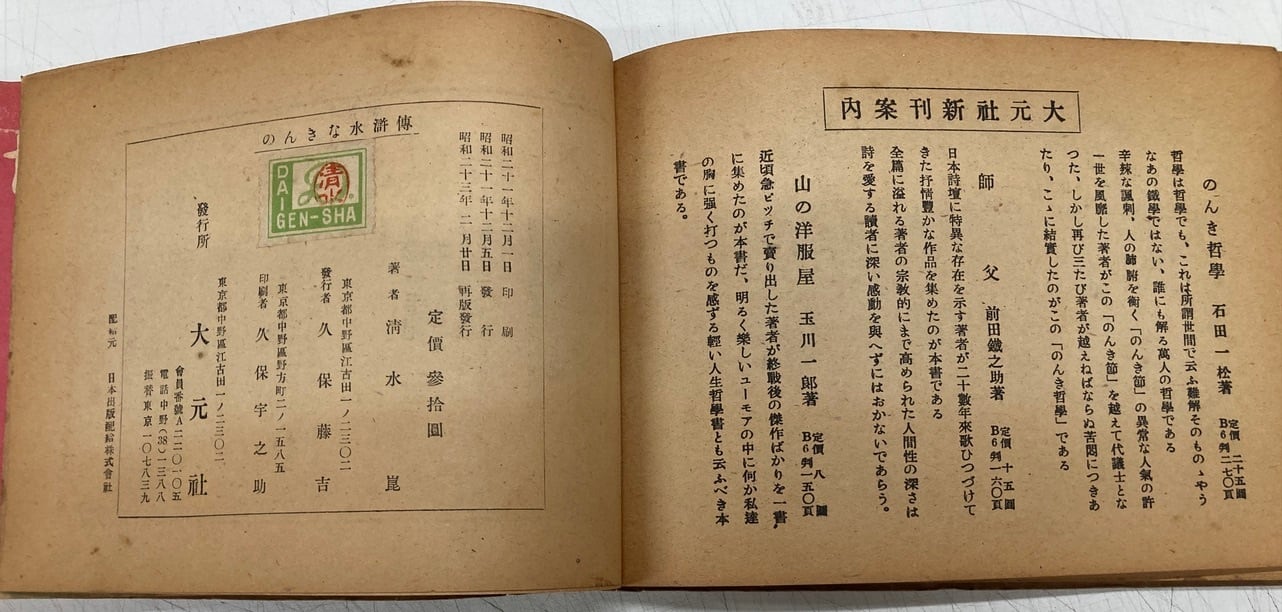 大元社新刊案内
のんき哲學　石田一松著　定價 二十五圓　B6判二七〇頁
哲學は哲學でも、これは所謂世間で云ふ難解そのものゝやう
なあの鐵學ではない、誰にも解る萬人の哲學である
辛辣な諷刺、人の肺腑を衝く「のんき節」の異常な人氣の許
一世を風靡した著者がこの「のんき節」を越えて代議士とな
つた、しかし再び三たび著者が越えねばならぬ苦悶につきあ
たり、こゝに結實したのがこの「のんき哲學」である
師父　前田鐵之助著　定價 十五圓　B6判一六〇頁
日本詩壇に特異な存在を示す著者が二十數年來歌ひつづけて
きた抒情豊かな作品を集めたのが本書である
全篇に溢れる著者の宗教的にまで高められた人間性の深さは
詩を愛する讀者に深い感動を與へずにはおかないであらう。
山の洋服屋　玉川一郎著　定價 八圓　B6判一五〇頁
近頃急ピツチで賣り出した著者が終戰後の傑作ばかりを一書
に集めたのが本書だ、明るく樂しいユーモアの中に何か私達
の胸に强く打つものを感ずる輕い人生哲學書とも云ふべき本
書である。
のんきな水滸傳
昭和二十一年十二月一日 印刷
昭和二十一年十二月五日 發行
昭和二十三年 二月廿日 再版發行
定價參拾圓
著者 淸水崑
東京都中野區江古田一ノ二三〇二
發行者 久保藤吉
東京都中野區野方町二ノ一五八五
印刷者 久保宇之助
東京都中野區江古田一ノ二三〇二
發行所 大元社
會員番號A二二〇一〇五
電話中野(38)一三八八
振替東京一〇七八三九
配給元 日本出版配給株式會社
DAI
GEN-SHA
清水